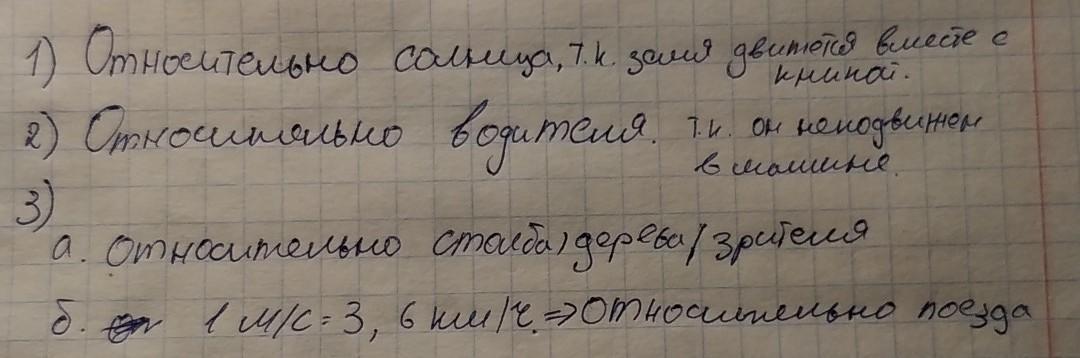 1) Относительно солнца, т.к. земля движется вместе с
книгой.
2) Относительно водителя. т.к. он неподвижен
в машине.
3)
а. относительно столба/дерева/зрителя
б. 1 м/с = 3,6 км/ч. ⇒ относительно поезда